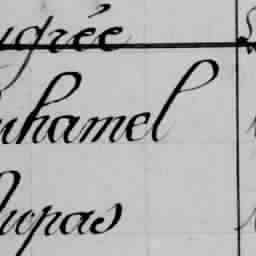 ugrée
uhamel
upas